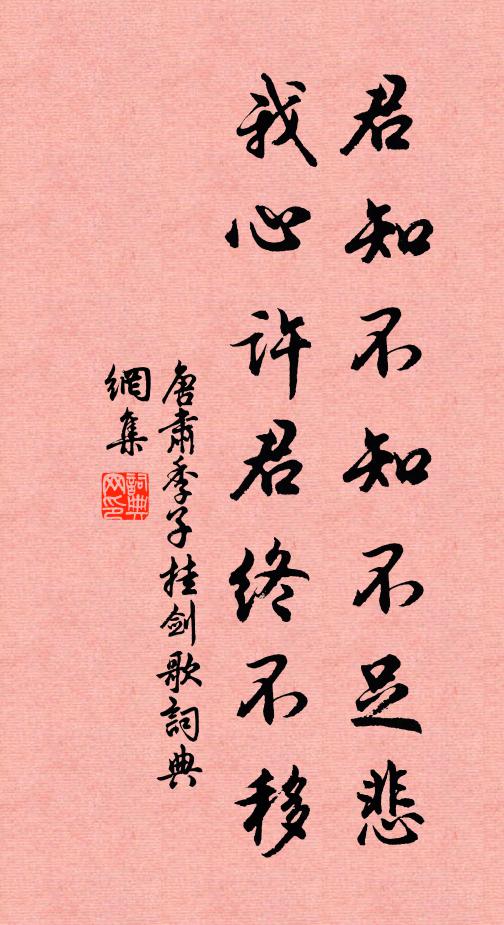 君知不知不足悲
我心许君终不移
唐肃季子挂剑歌詞典
網集
詞典
网印